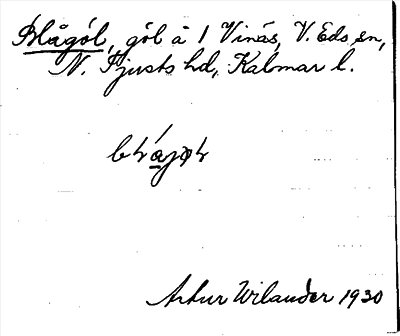 Blågöl, göl å 1 Vinås, V. Eds sn,
N. Tjusts hd, Kalmar l.
Artur Wilander 1930